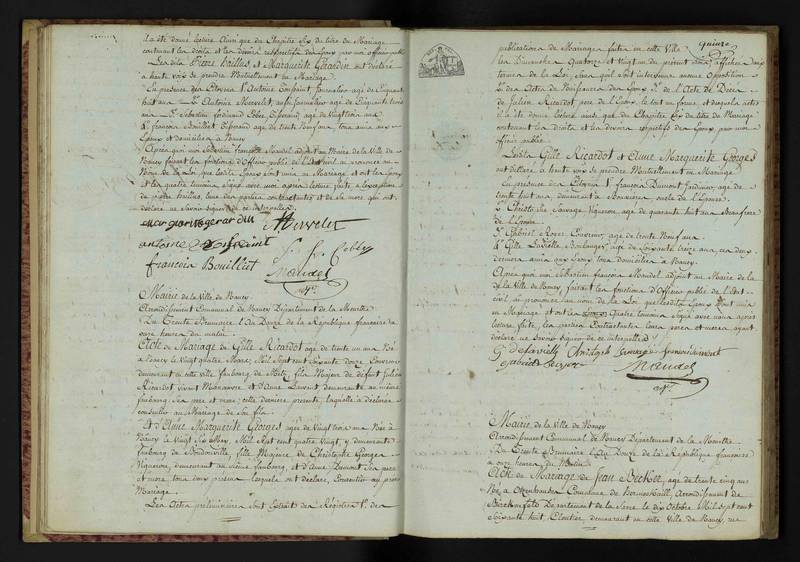 La été donné lecture ainsi que du Chapitre Six du titre du Mariage
contenant les droits et les devoirs respectifs des Epoux par un officier public
Lesdits Pierre Failles, et Marguerite Gerardin ont déclaré
à haute voix se prendre Mutuellement en Mariage.
En presence des Citoyens 1° Antoine Toussaint, Journalier agé de Cinquante
huit ans 2° Antoine Mervelet, aussi Journalier agé de Cinquante trois
ans 3° Sebastien ferdinand Cobley agé de Vingt
4° françois Bouillet agé de trente
Epoux et domiciliés à Nancy
Après quoi moi Sebastien françois Mandel adjoint au Maire de la Ville de
Nancy faisant les fonctions d'Officier public de l'Etat civil ai prononcé au
Nom de la Loi que lesdits Epoux sont unis en Mariage et ont les Epoux
et les quatre temoins signé avec moi après lecture faite à l'exception
de
déclaré ne savoir signer de ce interpellés
marguerite gerardin Mervelet
antoine toussaint S. F. Cobley
françois Bouilliet Mandel
adj.
Mairie de la Ville de Nancy
Arrondissement Communal de Nancy Département de la Meurthe
Du Trente Brumaire L'an Douze de la République française à
onze heures du matin
Acte de Mariage de Gille Ricardot agé de trente un ans Né
à Nancy le Vingt quatre Mars, Mil Sept cent Soixante douze, Couvreur
demeurant en cette ville faubourg de Metz, fils Majeur de défunt Julien
Ricardot vivant Manœuvre, et d'Anne Laurent demeurante au même
faubourg Ses pere et mere; cette derniere presente, laquelle a déclaré
consentir au Mariage de Son fils.
Et d'Anne Marguerite Georges agée de Vingt un ans Née à
Nancy le Vingt Six May, Mil Sept cent quatre Vingt, y demeurante
faubourg de Boudonville, fille Majeure de Christophe Georges
Vigneron, demeurant au même faubourg, et d'Anne Dumont Ses pere
et mere, tous deux presens lesquels ont déclaré, Consentir au present
Mariage.
Les Actes préliminaires sont Extrait des Régistres 1° des
Quinze
publications de Mariage faites en cette Ville
les Dimanche Quatorze et Vingt un du présent mois, affichées aux
termes de la Loi, Sans qu'il soit intervenu aucune Opposition
2° des Actes de Naissances des Epoux 3° de l'Acte de Décès
de Julien Ricardot pere de l'Epoux, le tout en forme, et desquels actes
il a été donné lecture ainsi que du Chapitre Six du titre du Mariage
contenant les droits et les devoirs respectifs des Epoux par moi
officier public.
Lesdits Gille Ricardot et Anne Marguerite Georges
ont déclaré à haute voix se prendre Mutuellement en Mariage
En presence des Citoyens 1° François Dumont Jardinier agé de
trente huit ans, demeurant à Bouxieres oncle de l'Epouse.
2° Christophe Sauvage Vigneron, agé de quarante huit ans Beaufrere
de l'Epouse
3° Gabriel Royer Couvreur, agé de trente Neuf ans
4° Gille Lavielle Boulanger, agé de Soixante treize ans, ces deux
derniers amis aux Epoux tous domiciliés à Nancy.
Après quoi moi Sebastien françois Mandel adjoint au Maire de la
de la Ville de Nancy, faisant les fonctions d'Officier public de l'Etat
civil ai prononcé au nom de la Loi que lesdits Epoux sont unis
en Mariage et ont les Quatre temoins signé avec moi après
lecture faite, les parties Contractantes leurs peres et meres ayant
déclaré ne Savoir Signer de ce interpellés
G Delavielle Christophe Sauvage
gabriel royer Mandel
adj.
Mairie de la Ville de Nancy
Arrondissement Communal de Nancy Département de la Meurthe
Du Trente Brumaire L'an Douze de la République française
à onze heures du Matin
Acte de Mariage de Jean Becker, agé de trente cinq ans
Né à Commune de Arrondissement de
Birckenfeld Département de la Sarre le dix Octobre Mil Sept cent
Soixante huit Cloutier demeurant en cette Ville de Nancy, rue